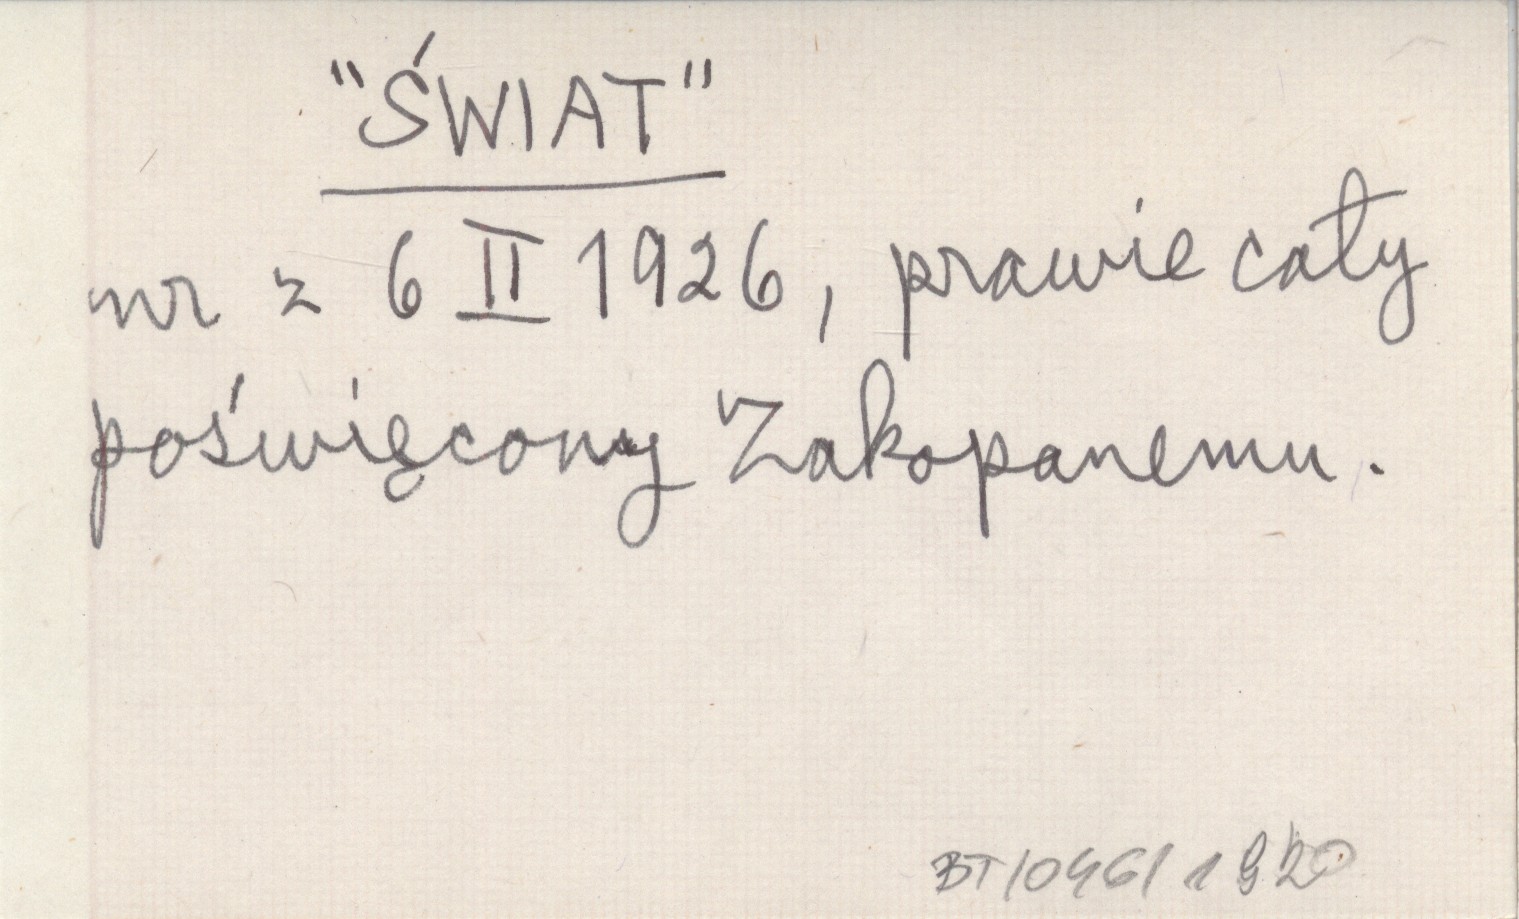 "ŚWIAT"
nr z 6 II 1926, prawie cały
poświęcony Zakopanemu.
BT/046/